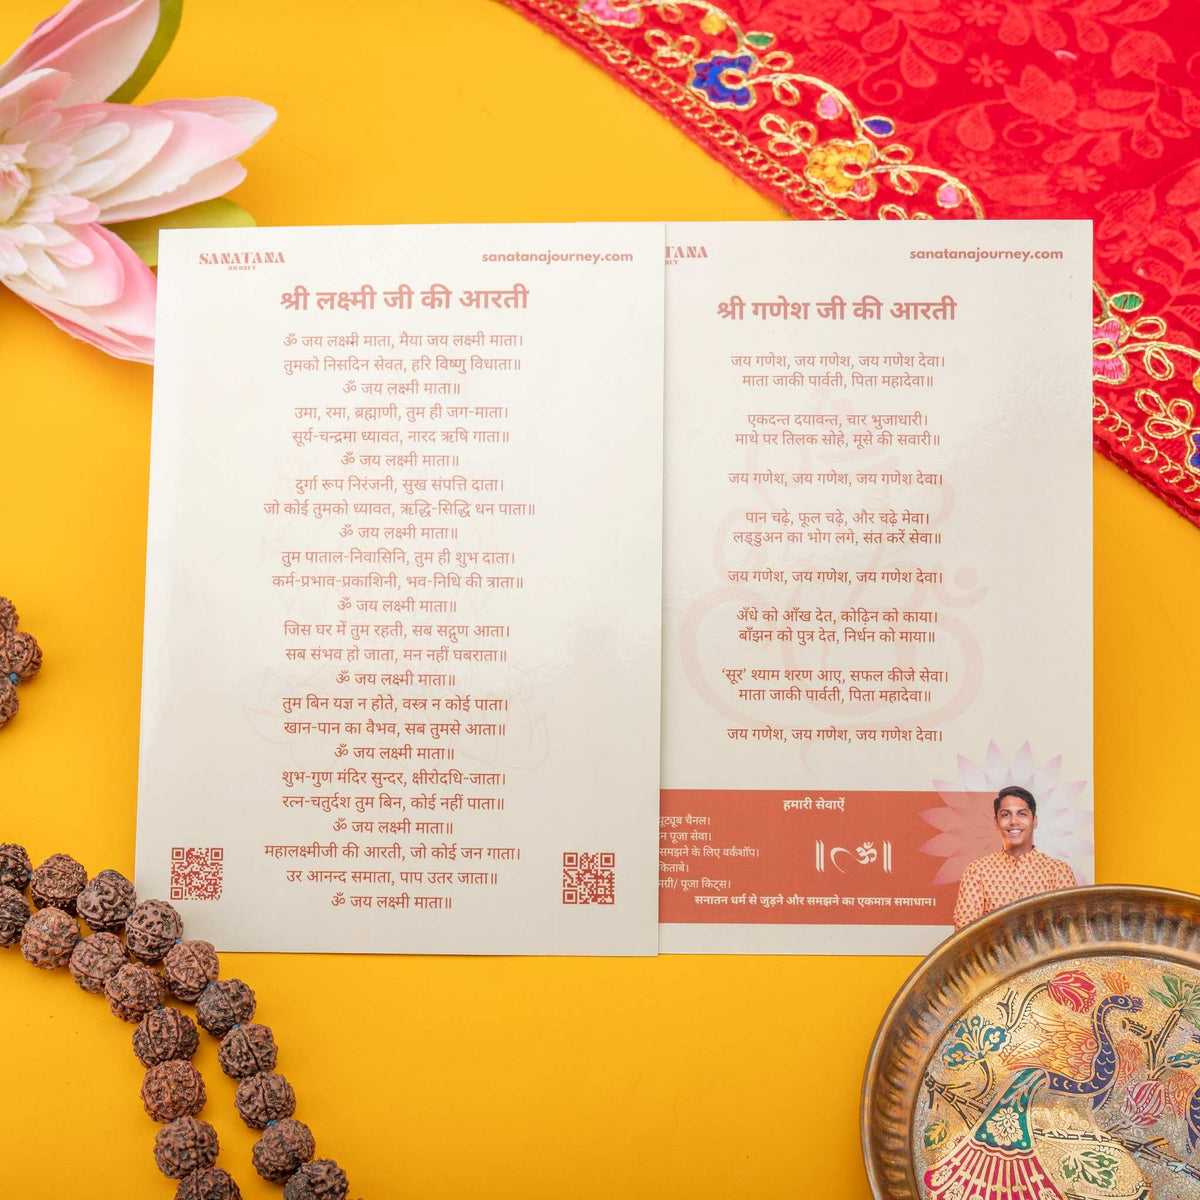 SANATANA
JOURNEY
sanatanajourney.com
श्री लक्ष्मी जी की आरती
ॐ जय लक्ष्मी माता, मैया जय लक्ष्मी माता।
तुमको निसदिन सेवत, हरि विष्णु विधाता॥
ॐ जय लक्ष्मी माता॥
उमा, रमा, ब्रह्माणी, तुम ही जग-माता।
सूर्य-चन्द्रमा ध्यावत, नारद ऋषि गाता॥
ॐ जय लक्ष्मी माता॥
दुर्गा रूप निरंजनी, सुख संपत्ति दाता।
जो कोई तुमको ध्यावत, ऋद्धि-सिद्धि धन पाता॥
ॐ जय लक्ष्मी माता॥
तुम पाताल-निवासिनि, तुम ही शुभ दाता।
कर्म-प्रभाव-प्रकाशिनी, भव-निधि की त्राता॥
ॐ जय लक्ष्मी माता॥
जिस घर में तुम रहती, सब सद्गुण आता।
सब संभव हो जाता, मन नहीं घबराता॥
ॐ जय लक्ष्मी माता॥
तुम बिन यज्ञ न होते, वस्त्र न कोई पाता।
खान-पान का वैभव, सब तुमसे आता॥
ॐ जय लक्ष्मी माता॥
शुभ-गुण मंदिर सुन्दर, क्षीरोदधि-जाता।
रत्न-चतुर्दश तुम बिन, कोई नहीं पाता॥
ॐ जय लक्ष्मी माता॥
महालक्ष्मीजी की आरती, जो कोई जन गाता।
उर आनन्द समाता, पाप उतर जाता॥
ॐ जय लक्ष्मी माता॥
TANA
NEY
sanatanajourney.com
श्री गणेश जी की आरती
जय गणेश, जय गणेश, जय गणेश देवा।
माता जाकी पार्वती, पिता महादेवा॥
एकदन्त दयावन्त, चार भुजाधारी।
माथे पर तिलक सोहे, मूसे की सवारी॥
जय गणेश, जय गणेश, जय गणेश देवा।
पान चढ़े, फूल चढ़े, और चढ़े मेवा।
लड्डुअन का भोग लगे, संत करें सेवा॥
जय गणेश, जय गणेश, जय गणेश देवा।
अँधे को आँख देत, कोढ़िन को काया।
बाँझन को पुत्र देत, निर्धन को माया॥
'सूर' श्याम शरण आए, सफल कीजे सेवा।
माता जाकी पार्वती, पिता महादेवा॥
जय गणेश, जय गणेश, जय गणेश देवा।
हमारी सेवाऐं
यूट्यूब चैनल।
न पूजा सेवा।
समझने के लिए वर्कशॉप।
किताबे।
मग्री/ पूजा किट्स।
॥ ॐ ॥
सनातन धर्म से जुड़ने और समझने का एकमात्र समाधान।